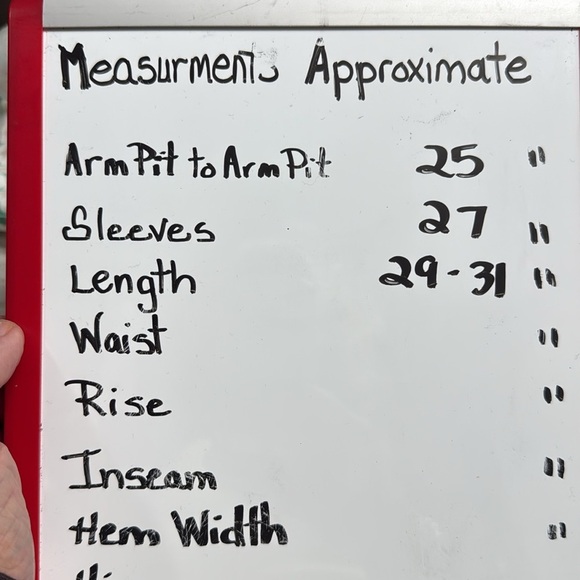 Measurments Approximate
ArmPit to ArmPit 25 "
Sleeves 27 "
Length 29-31 "
Waist "
Rise "
Inseam "
Hem Width "